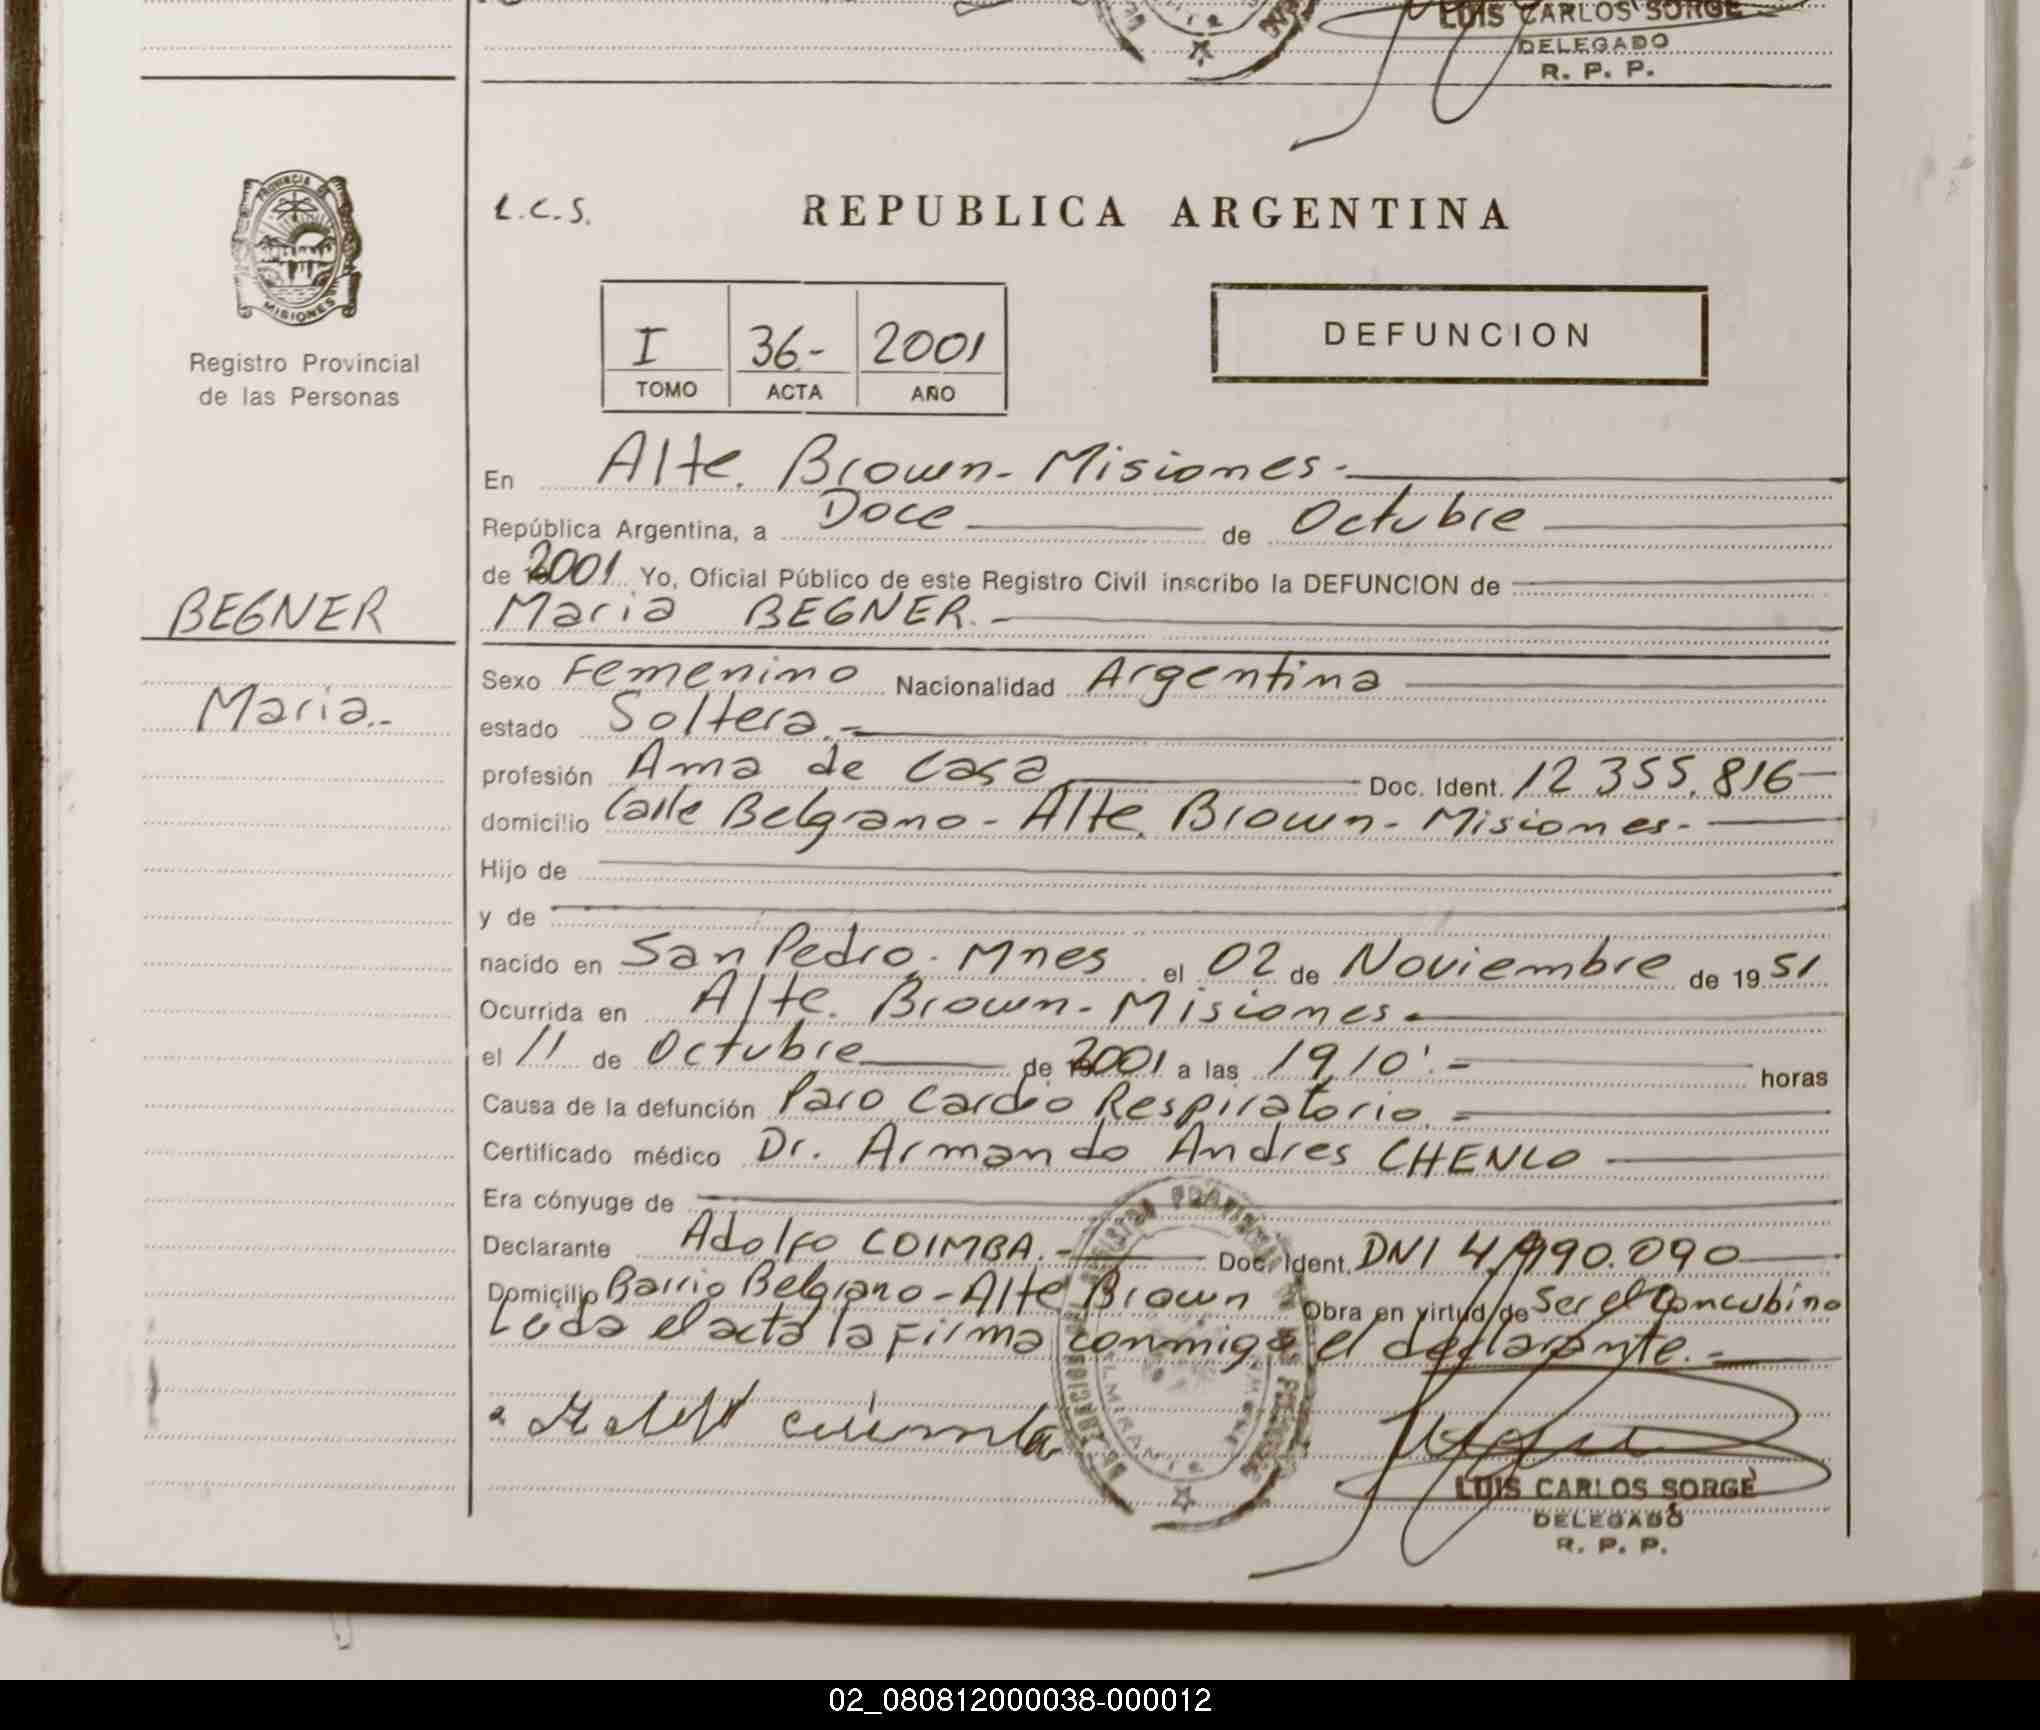 LUIS CARLOS SORGE
DELEGADO
R. P. P.
PROVINCIA DE
MISIONES
Registro Provincial
de las Personas
L.C.S.
REPUBLICA ARGENTINA
I 36- 2001
TOMO ACTA AÑO
DEFUNCION
En Alte. Brown - Misiones -
República Argentina, a Doce de Octubre
de 2001 Yo, Oficial Público de este Registro Civil inscribo la DEFUNCION de
BEGNER
Maria BEGNER. -
Sexo Femenino Nacionalidad Argentina
Maria.-
estado Soltera. -
profesión Ama de Casa Doc. Ident. 12 355.816
domicilio Calle Belgrano - Alte. Brown - Misiones. -
Hijo de
y de
nacido en San Pedro - Mnes el 02 de Noviembre de 1951
Ocurrida en Alte. Brown - Misiones.
el 11 de Octubre de 2001 a las 19,10'. - horas
Causa de la defunción Paro Cardio Respiratorio. -
Certificado médico Dr. Armando Andres CHENLO
Era cónyuge de
Declarante Adolfo COIMBA. - Doc. Ident. DNI 4.990.090
Domicilio Barrio Belgrano - Alte Brown Obra en virtud de Ser el Concubino
Leida el acta la firma conmigo el declarante. -
LUIS CARLOS SORGE
DELEGADO
R. P. P.
02_080812000038-000012